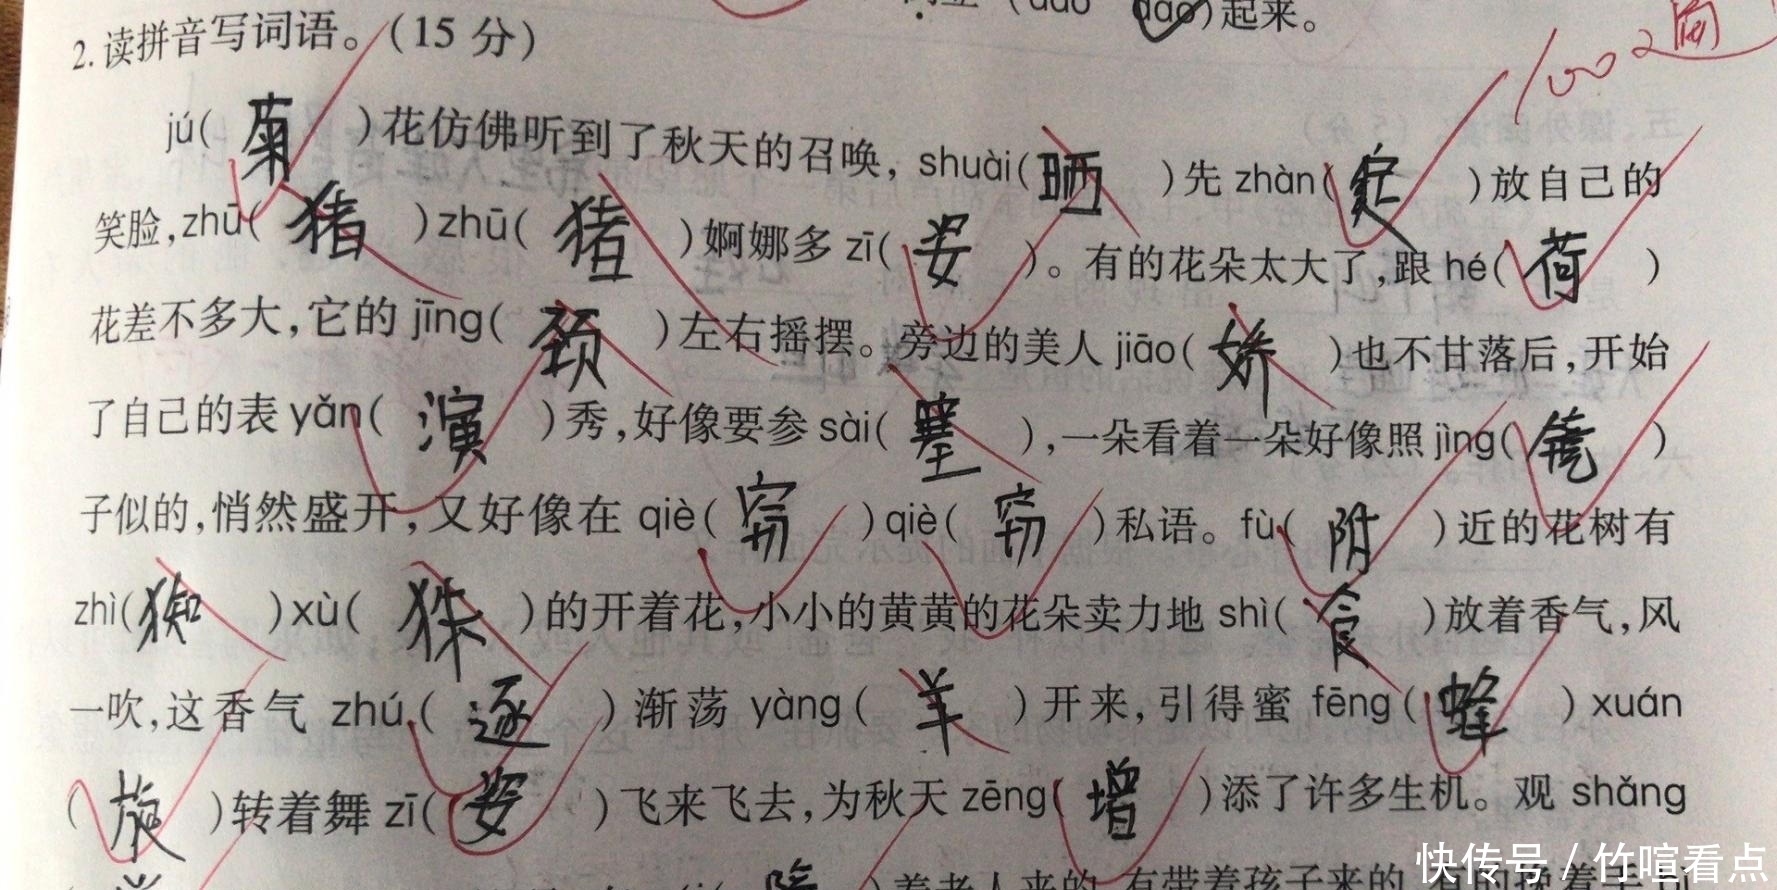 (dāo dǎo)起来。
2.读拼音写词语。(15分)
100 2
jú(菊)花仿佛听到了秋天的召唤,shuài(晒)先zhàn(绽)放自己的
笑脸,zhū(猪)zhū(猪)婀娜多zī(姿)。有的花朵太大了,跟hé(荷)
花差不多大,它的jīng(颈)左右摇摆。旁边的美人jiāo(娇)也不甘落后,开始
了自己的表yǎn(演)秀,好像要参sài(塞),一朵看着一朵好像照jìng(镜)
子似的,悄然盛开,又好像在qiè(窃)qiè(窃)私语。fù(附)近的花树有
zhì( )xù( )的开着花,小小的黄黄的花朵卖力地shì(食)放着香气,风
一吹,这香气zhú(逐)渐荡yàng(羊)开来,引得蜜fēng(蜂)xuán
(旋)转着舞zī(姿)飞来飞去,为秋天zēng(增)添了许多生机。观shǎng
着老人来的,有带着孩子来的,有的挽着手
快传号/竹喧看点